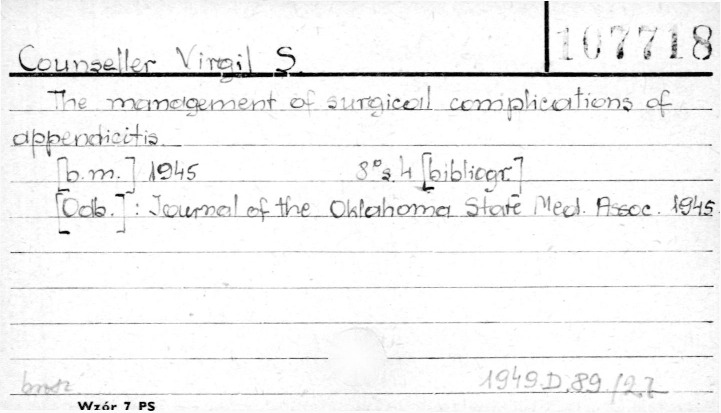 107718
Counseller Virgil S.
The management of surgical complications of
appendicitis
[b.m.] 1945 8° s. 4 [bibliogr.]
[Odb.]: Journal of the Oklahoma State Med. Assoc. 1945.
brosz
1949.D.89/27
Wzór 7 PS